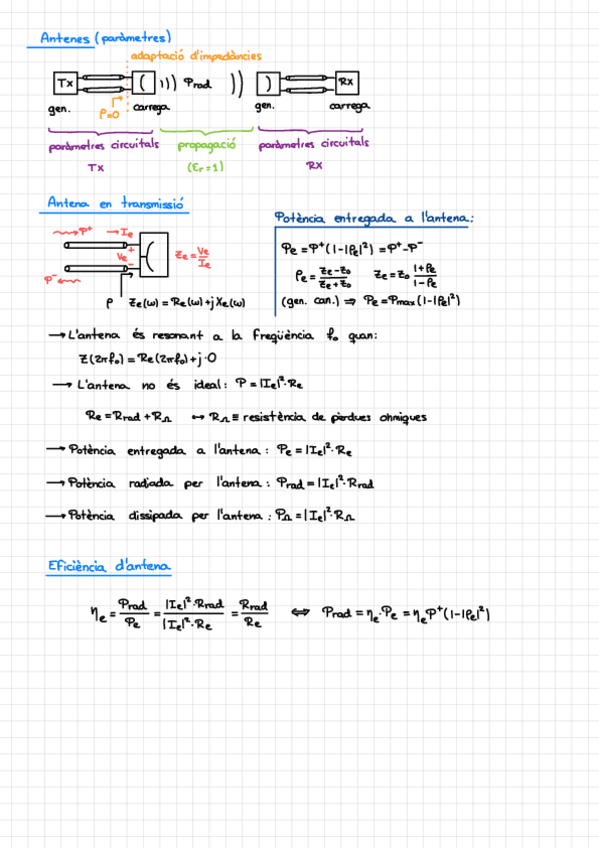 Antenes (paràmetres)
adaptació d'impedàncies
Tx ( ))) Prad )) ) Rx
gen. ρ=0 carrega gen. carrega
paràmetres circuitals propagació paràmetres circuitals
Tx (εr=1) Rx
Antena en transmissió
Potència entregada a l'antena:
P⁺ → Ie
Ve + - Ze = Ve/Ie
P⁻
ρ Ze(ω) = Re(ω)+jXe(ω)
Pe = P⁺(1-|ρe|²) = P⁺-P⁻
ρe = (Ze-Z0)/(Ze+Z0) Ze = Z0 (1+ρe)/(1-ρe)
(gen. can.) ⇒ Pe = Pmax(1-|ρe|²)
→ L'antena és resonant a la freqüència f0 quan:
Z(2πf0) = Re(2πf0)+j·0
→ L'antena no és ideal: P = |Ie|²·Re
Re = Rrad + RΩ ↔ RΩ ≡ resistència de pèrdues ohmiques
→ Potència entregada a l'antena: Pe = |Ie|²·Re
→ Potència radiada per l'antena: Prad = |Ie|²·Rrad
→ Potència dissipada per l'antena: PΩ = |Ie|²·RΩ
Eficiència d'antena
ηe = Prad/Pe = |Ie|²·Rrad/|Ie|²·Re = Rrad/Re ⇔ Prad = ηe·Pe = ηe P⁺(1-|ρe|²)